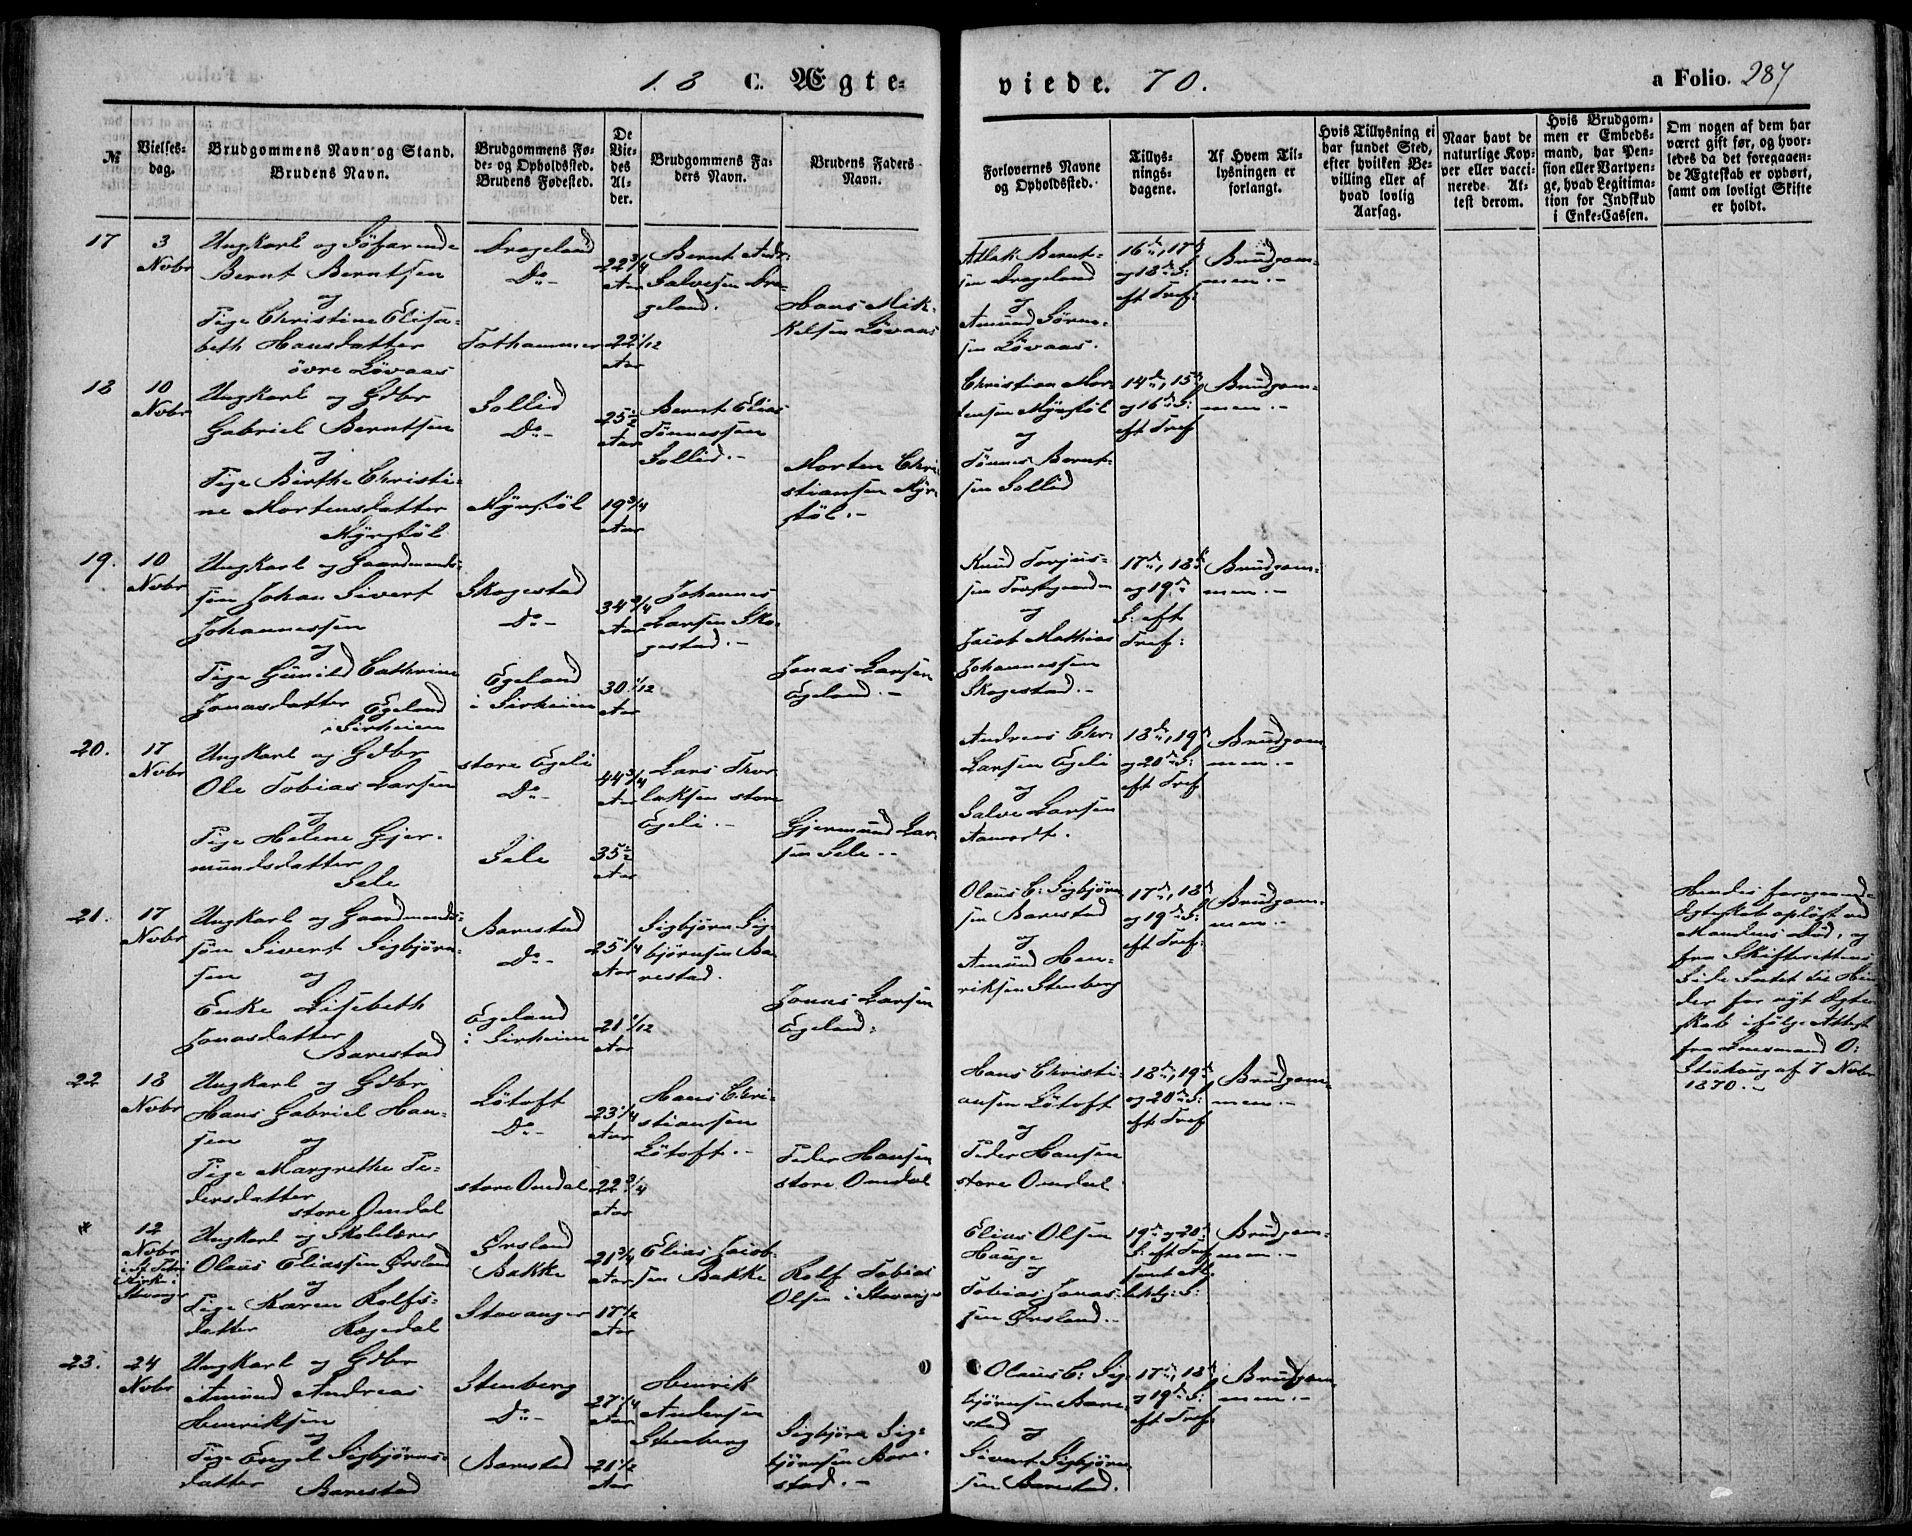 18 C. Ægte-
viede. 70.
a Folio. 287
№
Vielses-
dag.
Brudgommens Navn og Stand.
Brudens Navn.
Brudgommens Fø-
de- og Opholdssted.
Brudens Fødested.
De
Vie-
des
Al-
der.
Brudgommens Fa-
ders Navn.
Brudens Faders
Navn.
Forlovernes Navne
og Opholdssted.
Tillys-
nings-
dagene.
Af Hvem Til-
lysningen er
forlangt.
Hvis Tillysning ei
har fundet Sted,
efter hvilken Be-
villing eller af
hvad lovlig
Aarsag.
Naar havt de
naturlige Kop-
per eller vacci-
nerede. At-
test derom.
Hvis Brudgom-
men er Embeds-
mand, har Pen-
sion eller Vartpen-
ge, hvad Legitima-
tion for Indskud
i Enke-Cassen.
Om nogen af dem har
været gift før, og hvor-
ledes da det foregaaen-
de Ægteskab er ophørt,
samt om lovligt Skifte
er holdt.
17
3
Novbr
Ungkarl og Söfarende
Bernt Berntsen
og
Pige Christine Elisa-
beth Hansdatter
övre Lövaas
Drageland
Do -
Tothammer
22 3/4
Aar
22 1/12
Aar
Bernt Andr:
Salvesen Dra-
geland.
Hans Mik-
kelsen Lövaas
Atlak Bernt-
sen Drageland
og
Amund Sören-
sen Lövaas.
16de, 17de
og 18de S:
eft Tref:
Brudgom-
men. -
18
10
Novbr
Ungkarl og Gdbr
Gabriel Berntsen
og
Pige Birthe Christi-
ne Mortensdatter
Myrstöl
Sollid
Do -
Myrstöl
25 1/2
Aar
19 3/4
Aar
Bernt Elias
Tönnessen
Sollid. -
Morten Chri-
stiansen Myr-
stöl. -
Christian Mor-
tensen Myrstöl
og
Tönnes Bernt-
sen Sollid
14de, 15de
og 16de S:
eft Tref
Brudgom-
men. -
19.
10
Novbr
Ungkarl og Gaardmands-
sön Johan Sivert
Johannessen
og
Pige Gunild Cathrine
Jonasdatter Egeland
i Sirheien
Skogestad
Do -
Egeland
i Sirheien
34 3/4
Aar
30 1/12
Aar
Johannes
Larsen Sko-
gestad. -
Jonas Larsen
Egeland. -
Knud Torjus-
sen
og
Jacob Mathias
Johannessen
Skogestad. -
17de, 18de
og 19de
S: eft
Tref:
Brudgom-
men. -
20.
17
Novbr
Ungkarl og Gdbr
Ole Tobias Larsen
og
Pige Helene Gjer-
mundsdatter
Sele
store Egeli
Do -
Sele
44 3/4
Aar
35 1/2
Aar
Lars Thor-
laksen store
Egeli. -
Gjermund Lar-
sen Sele. -
Andreas Chr:
Larsen Egeli
og
Salve Larsen
Aamodt.
18de, 19de
og 20de S:
eft Tref
Brudgom-
men. -
21.
17
Novbr
Ungkarl og Gaardmands-
sön Sivert Sigbjörn-
sen og
Enke Lisebeth
Jonasdatter
Barestad
Barestad
Do -
Egeland
i Sirheien
25 1/4
Aar
21 1/12
Aar
Sigbjörn Sig-
björnsen Ba-
restad.
Jonas Larsen
Egeland.
Olaus B: Sigbjörn-
sen Barestad
og
Amund Hen-
riksen Stenberg
17de, 18de
og 19de S:
eft Tref:
Brudgom-
men. -
Hendes foregaaende
Egteskab oplöst ved
Mandens Död, og
fra Skifterettens
Side Intet til Hin-
der for nyt Egte-
skab ifölge Attest
fra Lensmand O:
af 7 Novbr
1870. -
22
18
Novbr
Ungkarl og Gdbr
Hans Gabriel Han-
sen og
Pige Margrethe Pe-
dersdatter
store Omdal
Lötoft
Do -
store Omdal
23 1/4
Aar
22 3/4
Aar
Hans Chri-
stiansen
Lötoft. -
Peder Hansen
store Omdal
Hans Christi-
ansen Lötoft
og
Peder Hansen
store Omdal
18de, 19de
og 20de S:
eft Tref
Brudgom-
men. -
12
Novbr
i St Petri
Kirke i
Stavanger
Ungkarl og Skolelærer
Olaus Eliassen Ørsland
og
Pige Karen Rolfs-
datter Rægedal
Ørsland
Bakke
Stavanger
21 3/4
Aar
17 1/2
Aar
Elias Jacob-
sen Bakke
Rolf Tobias
Olsen i Stavanger
Elias Olsen
Hauge
og
Tobias Jonas-
sen Ørsland. -
19de og 20de
S: eft Tref
samt
S:
Brudgom-
men. -
23.
24
Novbr
Ungkarl og Gdbr
Amund Andreas
Henriksen
og
Pige Engel Sigbjörns-
datter Barestad
Stenberg
Do -
Barestad
27 1/4
Aar
21 1/2
Aar
Henrik
Andersen
Stenberg
Sigbjörn Sig-
björnsen Bare-
stad. -
Olaus B: Sig-
björnsen Bare-
stad
og
Sivert Sigbjörn-
sen Barestad.
17de, 18de
og 19de S:
eft Tref:
Brudgom-
men. -